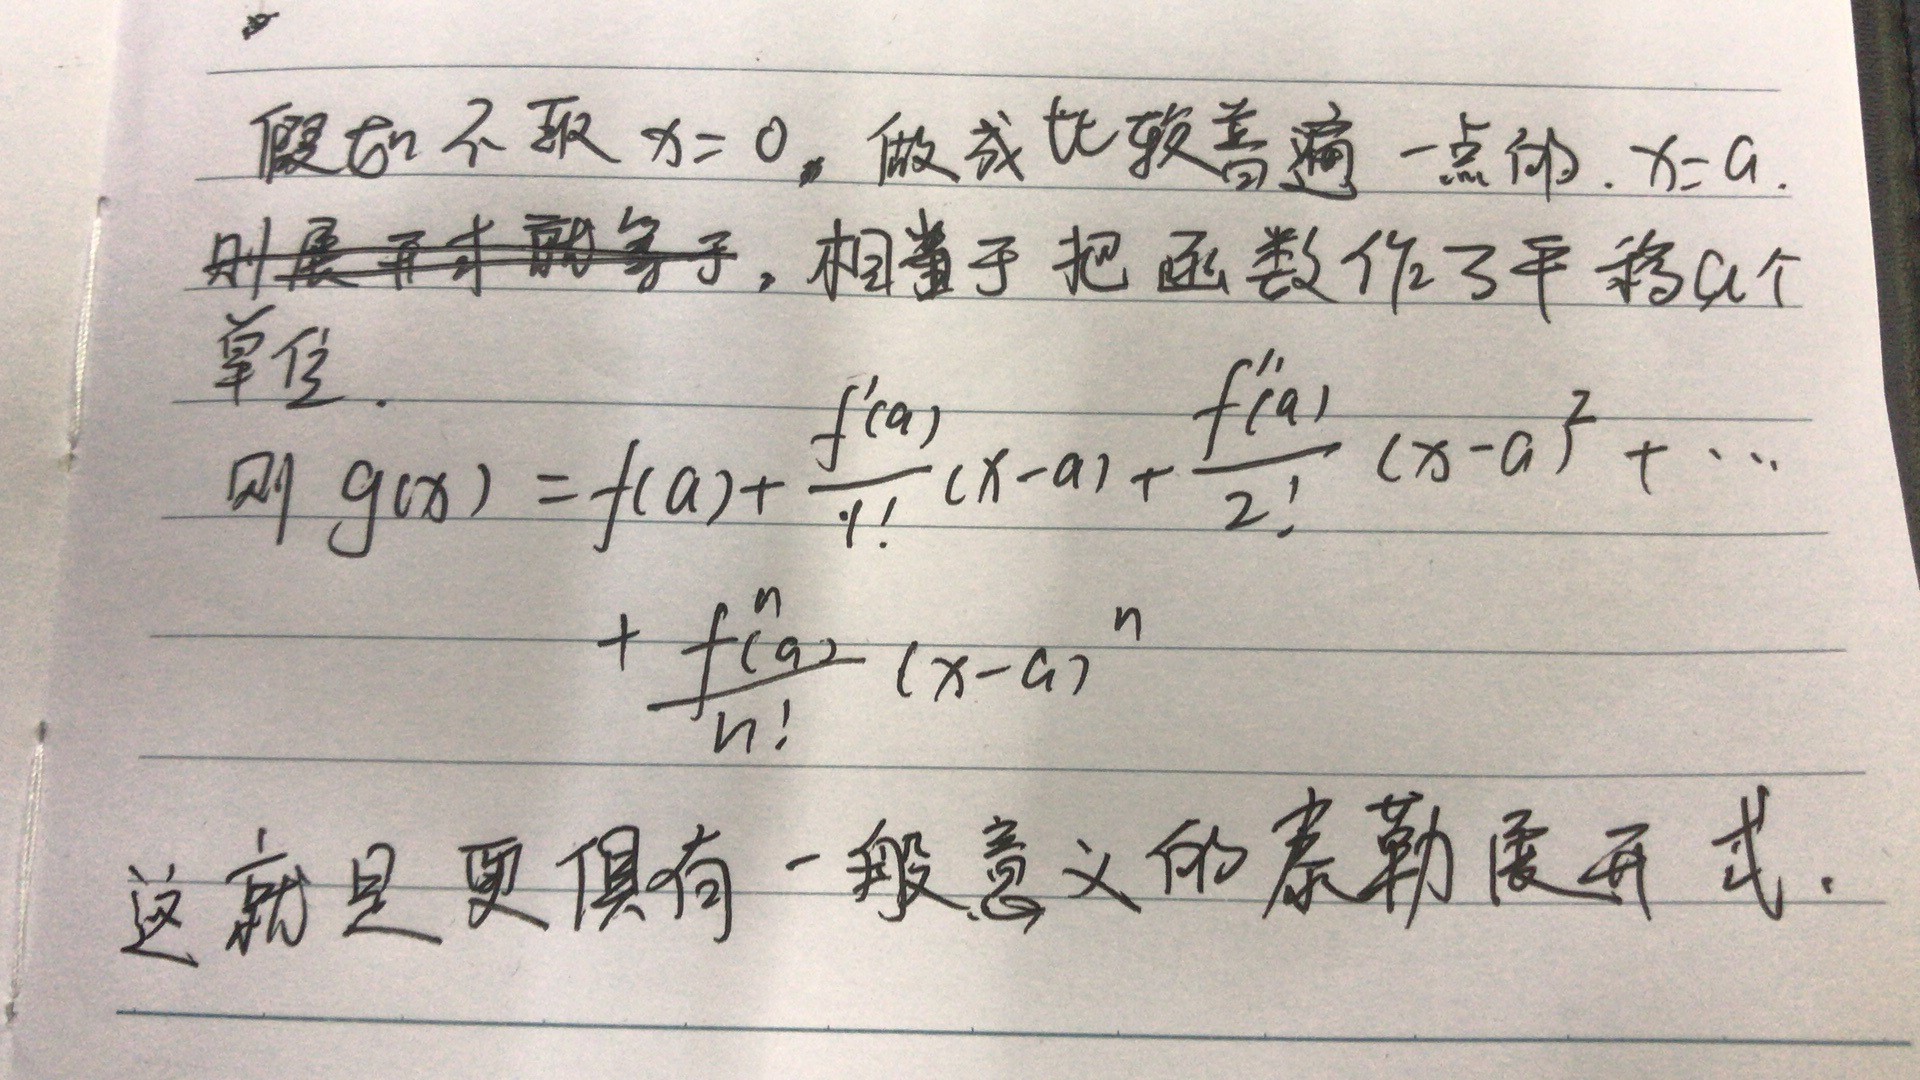 假如不取 x=0。做成比较普遍一点的. x=a.
则展开式就等于, 相当于把函数作了平移a个
单位.
则 g(x) = f(a) + f'(a)/1! (x-a) + f''(a)/2! (x-a)² + ...
+ fⁿ(a)/n! (x-a)ⁿ
这就是更俱有一般意义的泰勒展开式.